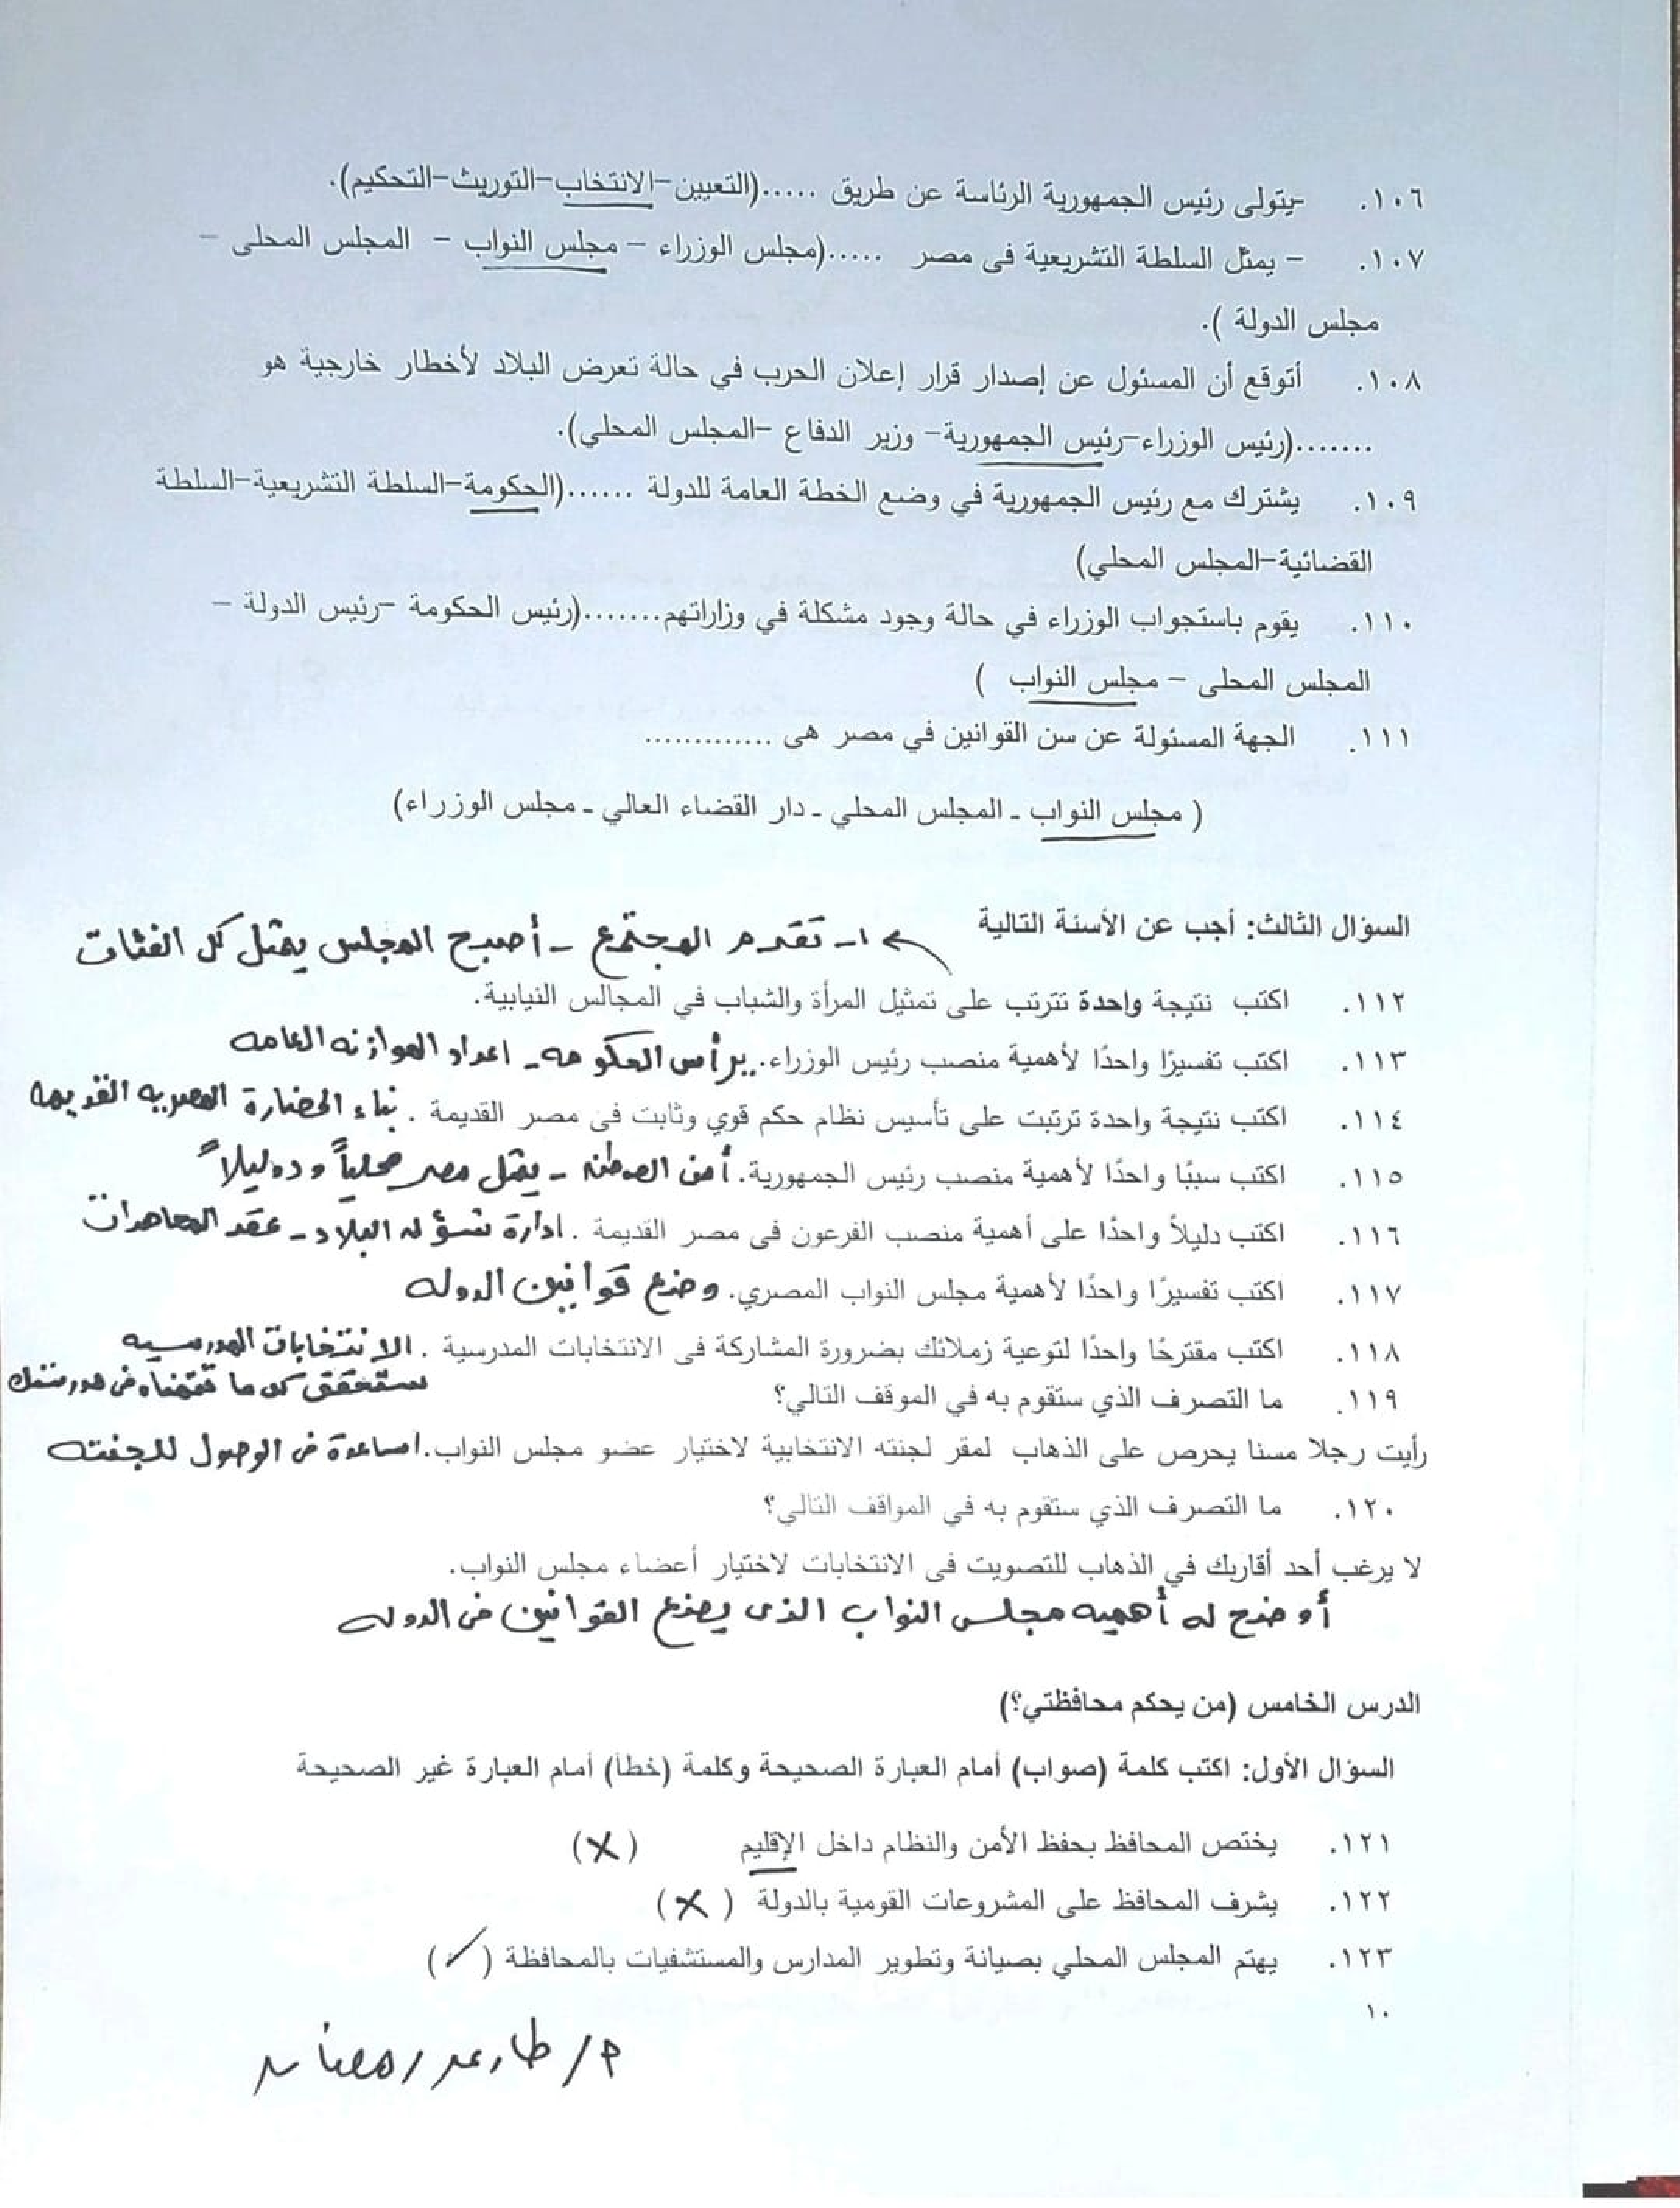 ١٠٦. -يتولى رئيس الجمهورية الرئاسة عن طريق .....(التعيين-الانتخاب-التوريث-التحكيم).
١٠٧. - يمثل السلطة التشريعية فى مصر .....(مجلس الوزراء - مجلس النواب - المجلس المحلى -
مجلس الدولة ).
١٠٨. أتوقع أن المسئول عن إصدار قرار إعلان الحرب في حالة تعرض البلاد لأخطار خارجية هو
.......(رئيس الوزراء-رئيس الجمهورية- وزير الدفاع -المجلس المحلي).
١٠٩. يشترك مع رئيس الجمهورية في وضع الخطة العامة للدولة ......(الحكومة-السلطة التشريعية-السلطة
القضائية-المجلس المحلي)
١١٠. يقوم باستجواب الوزراء في حالة وجود مشكلة في وزاراتهم.......(رئيس الحكومة -رئيس الدولة -
المجلس المحلى - مجلس النواب )
١١١. الجهة المسئولة عن سن القوانين في مصر هى .............
( مجلس النواب ـ المجلس المحلي ـ دار القضاء العالي ـ مجلس الوزراء)
السؤال الثالث: أجب عن الأسئة التالية ١- تقدم المجتمع - أصبح المجلس يمثل كل الفئات
١١٢. اكتب نتيجة واحدة تترتب على تمثيل المرأة والشباب في المجالس النيابية.
١١٣. اكتب تفسيرًا واحدًا لأهمية منصب رئيس الوزراء. يرأس الحكومه - اعداد الموازنه العامه
١١٤. اكتب نتيجة واحدة ترتبت على تأسيس نظام حكم قوي وثابت فى مصر القديمة . بناء الحضارة المصريه القديمه
١١٥. اكتب سببًا واحدًا لأهمية منصب رئيس الجمهورية. أمن الوطن - يمثل مصر محلياً ودولياً
١١٦. اكتب دليلاً واحدًا على أهمية منصب الفرعون فى مصر القديمة . ادارة شؤن البلاد - عقد المعاهدات
١١٧. اكتب تفسيرًا واحدًا لأهمية مجلس النواب المصري. وضع قوانين الدوله
١١٨. اكتب مقترحًا واحدًا لتوعية زملائك بضرورة المشاركة فى الانتخابات المدرسية . الانتخابات المدرسيه
ستحقق كل ما تتمناه فى مدرستك
١١٩. ما التصرف الذي ستقوم به في الموقف التالي؟
رأيت رجلا مسنا يحرص على الذهاب لمقر لجنته الانتخابية لاختيار عضو مجلس النواب. اساعدة فى الوصول للجنته
١٢٠. ما التصرف الذي ستقوم به في المواقف التالي؟
لا يرغب أحد أقاربك في الذهاب للتصويت فى الانتخابات لاختيار أعضاء مجلس النواب.
أوضح له أهميه مجلس النواب الذى يضع القوانين فى الدوله
الدرس الخامس (من يحكم محافظتي؟)
السؤال الأول: اكتب كلمة (صواب) أمام العبارة الصحيحة وكلمة (خطأ) أمام العبارة غير الصحيحة
١٢١. يختص المحافظ بحفظ الأمن والنظام داخل الإقليم (X)
١٢٢. يشرف المحافظ على المشروعات القومية بالدولة (X)
١٢٣. يهتم المجلس المحلي بصيانة وتطوير المدارس والمستشفيات بالمحافظة (✓)
١٠